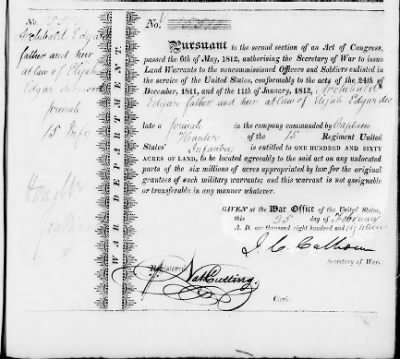 No.
Archibald Edgar
father and heir
at law of Elijah
Edgar
private
15 Infy
WAR DEPARTMENT.
No.
Pursuant to the second section of an Act of Congress,
passed the 6th of May, 1812, authorising the Secretary of War to issue
Land Warrants to the noncommissioned Officers and Soldiers enlisted in
the service of the United States, conformably to the acts of the 24th of
December, 1811, and of the 11th of January, 1812, Archibald
Edgar father and heir at law of Elijah Edgar dec
late a private in the company commanded by Captain
of the 15 Regiment United
States' Infantry is entitled to ONE HUNDRED AND SIXTY
ACRES OF LAND, to be located agreeably to the said act on any unlocated
parts of the six millions of acres appropriated by law for the original
grantees of such military warrants; and this warrant is not assignable
or transferable in any manner whatever.
GIVEN at the War Office of the United States,
this 25 day of February
A. D. one thousand eight hundred and
J. C. Calhoun
Secretary of War.
Registered
Nath Cutting
Clerk.